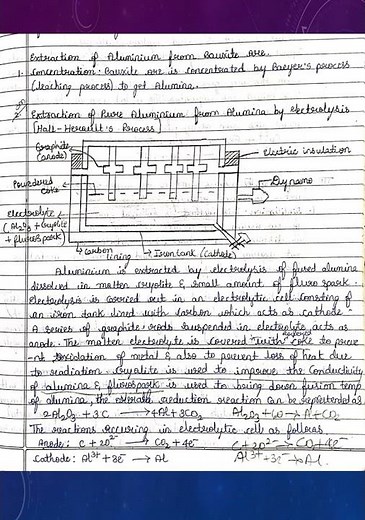 Extraction of Aluminium from Bauxite Ore.
1. Concentration: Bauxite ore is concentrated by Baeyer's process
(leaching process) to get Alumina.
2. Extraction of Pure Aluminium from Alumina by electrolysis
[Hall-Herault's Process]
Graphite
(anode)
electric insulation
Powdered
coke
Dynamo
electrolyte
(Al2O3 + Cryolite
+ fluorospark)
Carbon
lining
Iron tank (cathode)
Aluminium is extracted by electrolysis of fused alumina
dissolved in molten cryolite & small amount of fluorospark.
Electrolysis is carried out in an electrolytic cell consisting of
an iron tank lined with carbon which acts as cathode.
A series of graphite rods suspended in electrolyte acts as
anode. The molten electrolyte is covered with powdered coke to preve
-nt oxidation of metal & also to prevent loss of heat due
to radiation. Cryolite is used to improve the conductivity
of alumina & fluorospark is used to bring down fusion temp
of alumina, the overall reduction reaction can be represented as
2Al2O3 + 3C → 4Al + 3CO2
The reactions occuring in electrolytic cell as follows.
Anode: C + 2O2- → CO2 + 4e- C + 2O2- → CO2 + 4e-
Cathode: Al3+ + 3e- → Al Al3+ + 3e- → Al.